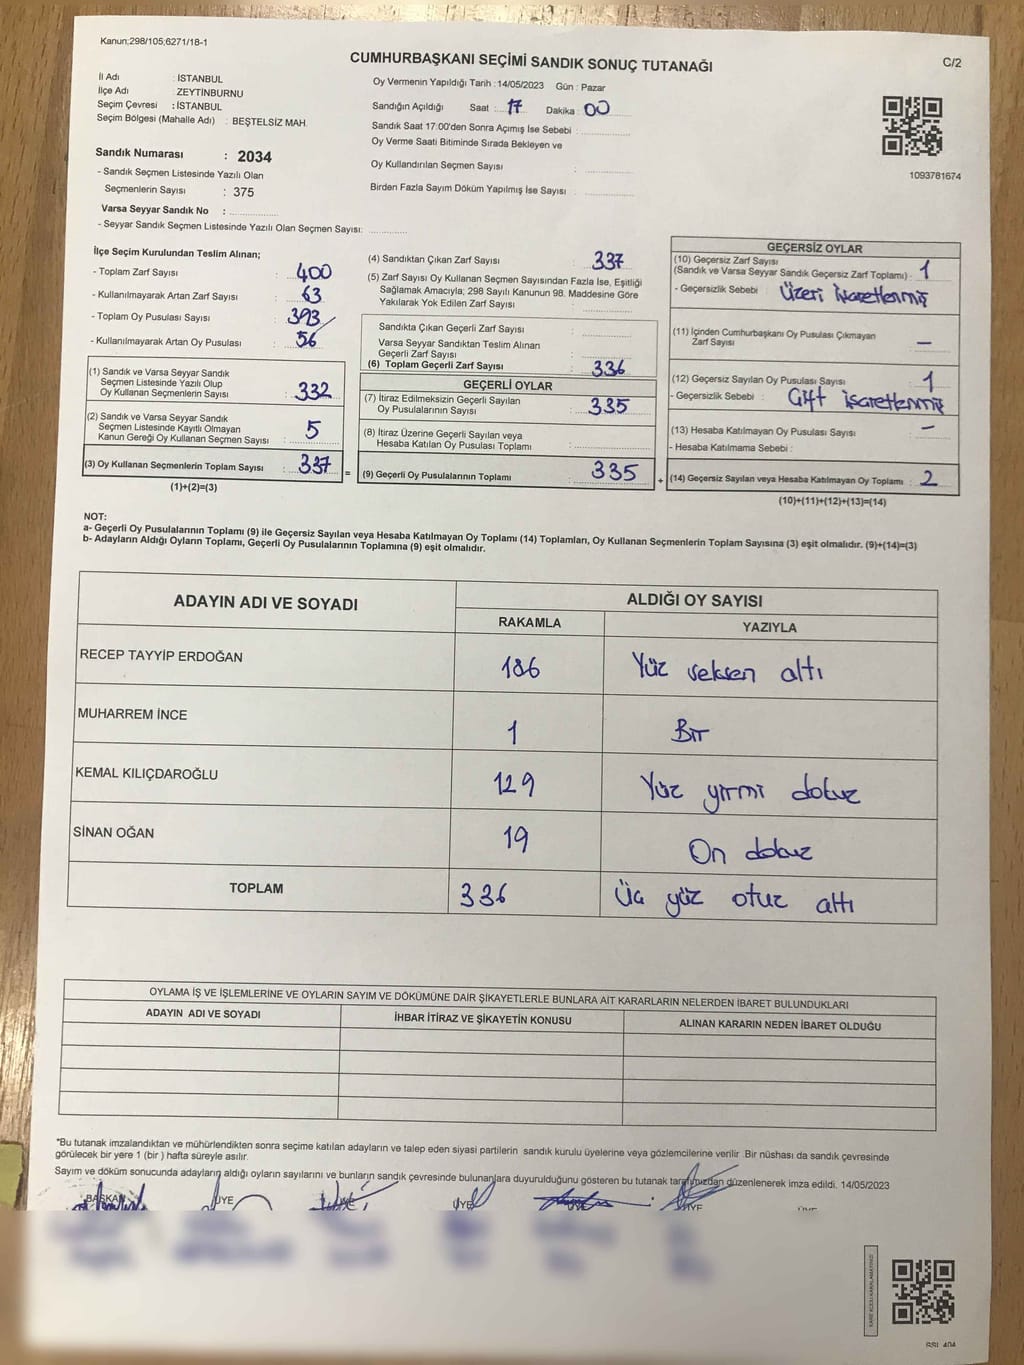 Kanun;298/105;6271/18-1
CUMHURBAŞKANI SEÇİMİ SANDIK SONUÇ TUTANAĞI
C/2
İl Adı : İSTANBUL
İlçe Adı : ZEYTİNBURNU
Seçim Çevresi : İSTANBUL
Seçim Bölgesi (Mahalle Adı) : BEŞTELSİZ MAH.
Sandık Numarası : 2034
- Sandık Seçmen Listesinde Yazılı Olan
Seçmenlerin Sayısı : 375
Varsa Seyyar Sandık No :
- Seyyar Sandık Seçmen Listesinde Yazılı Olan Seçmen Sayısı:
Oy Vermenin Yapıldığı Tarih : 14/05/2023 Gün : Pazar
Sandığın Açıldığı Saat : 17 Dakika : 00
Sandık Saat 17:00'den Sonra Açımış İse Sebebi :
Oy Verme Saati Bitiminde Sırada Bekleyen ve
Oy Kullandırılan Seçmen Sayısı :
Birden Fazla Sayım Döküm Yapılmış İse Sayısı :
1093781674
İlçe Seçim Kurulundan Teslim Alınan;
- Toplam Zarf Sayısı : 400
- Kullanılmayarak Artan Zarf Sayısı : 63
- Toplam Oy Pusulası Sayısı : 393
- Kullanılmayarak Artan Oy Pusulası : 56
(1) Sandık ve Varsa Seyyar Sandık
Seçmen Listesinde Yazılı Olup
Oy Kullanan Seçmenlerin Sayısı : 332
(2) Sandık ve Varsa Seyyar Sandık
Seçmen Listesinde Kayıtlı Olmayan
Kanun Gereği Oy Kullanan Seçmen Sayısı : 5
(3) Oy Kullanan Seçmenlerin Toplam Sayısı : 337
(1)+(2)=(3)
(4) Sandıktan Çıkan Zarf Sayısı : 337
(5) Zarf Sayısı Oy Kullanan Seçmen Sayısından Fazla İse, Eşitliği
Sağlamak Amacıyla, 298 Sayılı Kanunun 98. Maddesine Göre
Yakılarak Yok Edilen Zarf Sayısı :
Sandıkta Çıkan Geçerli Zarf Sayısı :
Varsa Seyyar Sandıktan Teslim Alınan
Geçerli Zarf Sayısı :
(6) Toplam Geçerli Zarf Sayısı : 336
GEÇERLİ OYLAR
(7) İtiraz Edilmeksizin Geçerli Sayılan
Oy Pusulalarının Sayısı : 335
(8) İtiraz Üzerine Geçerli Sayılan veya
Hesaba Katılan Oy Pusulası Toplamı :
= (9) Geçerli Oy Pusulalarının Toplamı : 335
GEÇERSİZ OYLAR
(10) Geçersiz Zarf Sayısı
(Sandık ve Varsa Seyyar Sandık Geçersiz Zarf Toplamı) : 1
- Geçersizlik Sebebi : Üzeri işaretlenmiş
(11) İçinden Cumhurbaşkanı Oy Pusulası Çıkmayan
Zarf Sayısı : -
(12) Geçersiz Sayılan Oy Pusulası Sayısı : 1
- Geçersizlik Sebebi : Çift işaretlenmiş
(13) Hesaba Katılmayan Oy Pusulası Sayısı : -
- Hesaba Katılmama Sebebi :
+ (14) Geçersiz Sayılan veya Hesaba Katılmayan Oy Toplamı : 2
(10)+(11)+(12)+(13)=(14)
NOT:
a- Geçerli Oy Pusulalarının Toplamı (9) ile Geçersiz Sayılan veya Hesaba Katılmayan Oy Toplamı (14) Toplamları, Oy Kullanan Seçmenlerin Toplam Sayısına (3) eşit olmalıdır. (9)+(14)=(3)
b- Adayların Aldığı Oyların Toplamı, Geçerli Oy Pusulalarının Toplamına (9) eşit olmalıdır.
ADAYIN ADI VE SOYADI
ALDIĞI OY SAYISI
RAKAMLA YAZIYLA
RECEP TAYYİP ERDOĞAN 186 Yüz seksen altı
MUHARREM İNCE 1 Bir
KEMAL KILIÇDAROĞLU 129 Yüz yirmi dokuz
SİNAN OĞAN 19 On dokuz
TOPLAM 336 Üç yüz otuz altı
OYLAMA İŞ VE İŞLEMLERİNE VE OYLARIN SAYIM VE DÖKÜMÜNE DAİR ŞİKAYETLERLE BUNLARA AİT KARARLARIN NELERDEN İBARET BULUNDUKLARI
ADAYIN ADI VE SOYADI İHBAR İTİRAZ VE ŞİKAYETİN KONUSU ALINAN KARARIN NEDEN İBARET OLDUĞU
*Bu tutanak imzalandıktan ve mühürlendikten sonra seçime katılan adayların ve talep eden siyasi partilerin sandık kurulu üyelerine veya gözlemcilerine verilir. Bir nüshası da sandık çevresinde
görülecek bir yere 1 (bir ) hafta süreyle asılır.
Sayım ve döküm sonucunda adayların aldığı oyların sayılarını ve bunların sandık çevresinde bulunanlara duyurulduğunu gösteren bu tutanak tarafımızdan düzenlenerek imza edildi. 14/05/2023
BAŞKAN ÜYE ÜYE ÜYE ÜYE ÜYE